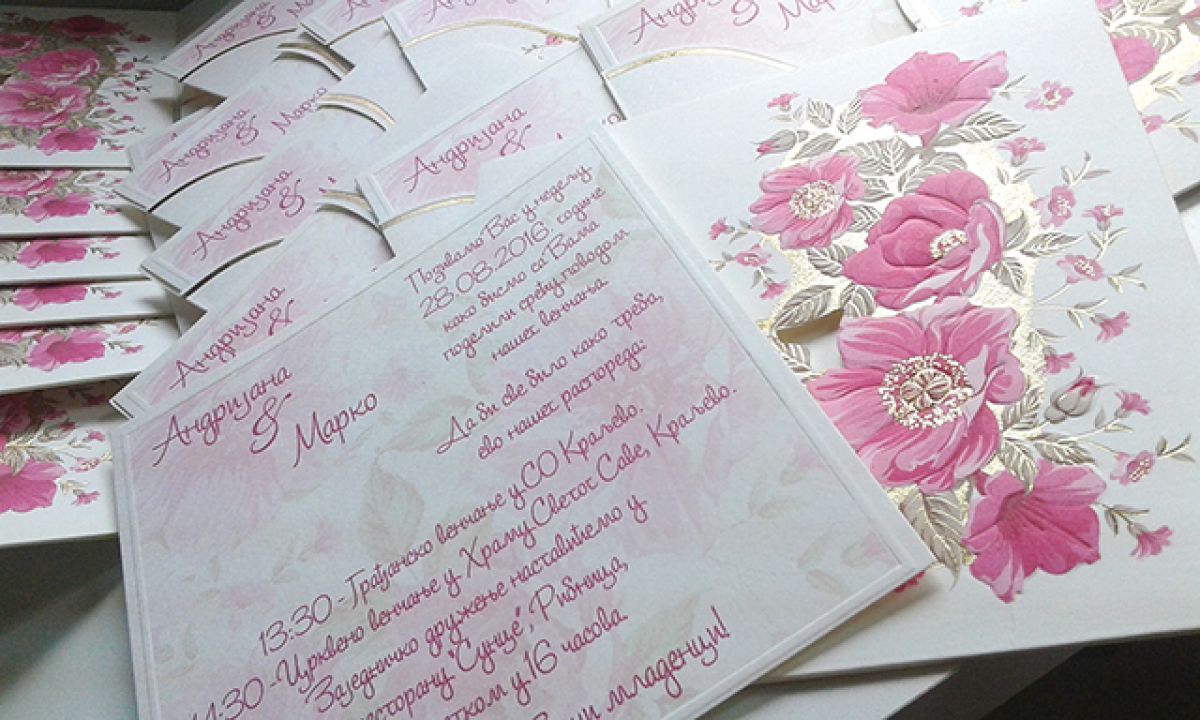 Андријана
&
Марко
Позивамо Вас у недељу
28.08.2016. године
како бисмо са Вама
поделили срећу поводом
нашег венчања
Да би све било како треба,
ево нашег распореда:
13:30 - Грађанско венчање у СО Краљево.
14:30 - Црквено венчање у Храму Светог Саве, Краљево.
Заједничко дружење наставићемо у
"Сунце", Рибница,
у 16 часова.
младенци!
Андријана
&
Андријана
&
Андријана
&
Марко
Андријана
&
Андријана
&
Марко
Андријана
&
Марко